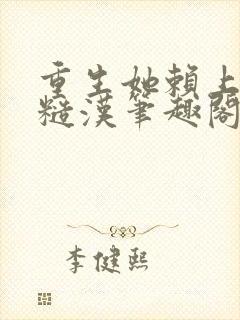 重生她賴上
糙漢筆趣閣
李健熙